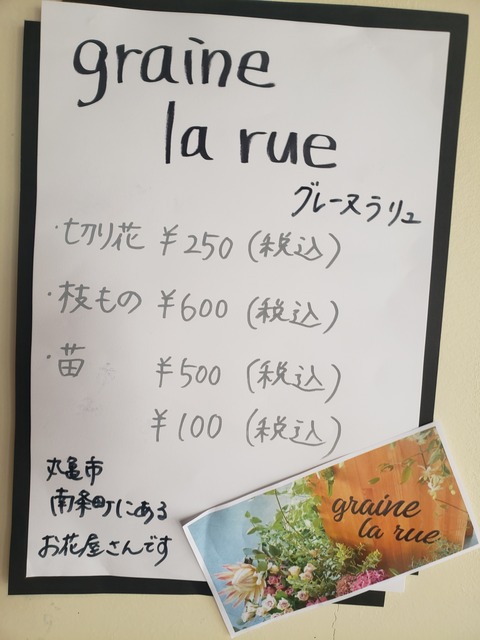 graine
la rue
グレーヌラリュ
・切り花 ¥250 (税込)
・枝もの ¥600 (税込)
・苗 ¥500 (税込)
¥100 (税込)
丸亀市
南条町にある
お花屋さんです
graine
la rue